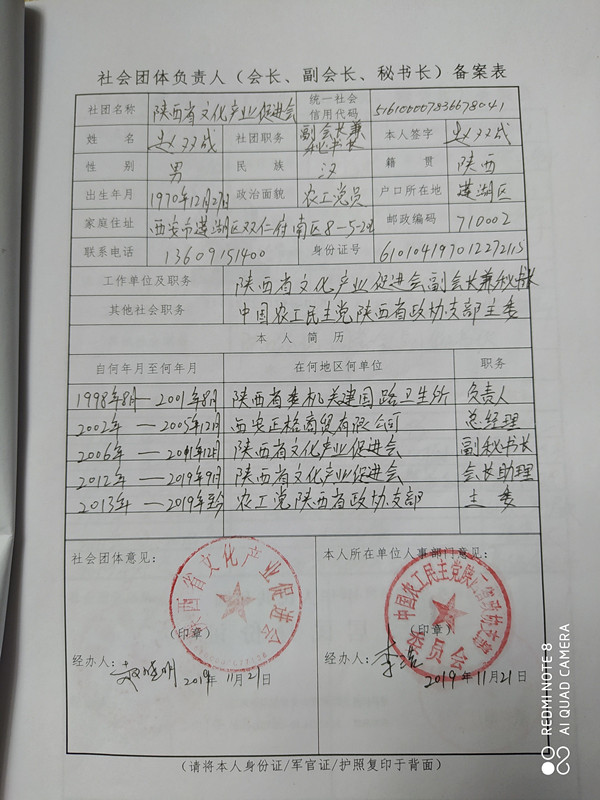 社会团体负责人（会长、副会长、秘书长）备案表
社团名称 陕西省文化产业促进会 统一社会信用代码 516100007836678041
姓 名 赵双成 社团职务 副会长兼秘书长 本人签字 赵双成
性 别 男 民 族 汉 籍 贯 陕西
出生年月 1970年12月27日 政治面貌 农工党员 户口所在地 莲湖区
家庭住址 西安市莲湖区双仁府南区8-5-2 邮政编码 710002
联系电话 13609151400 身份证号
工作单位及职务 陕西省文化产业促进会副会长兼秘书长
其他社会职务 中国农工民主党陕西省政协支部主委
本 人 简 历
自何年月至何年月 在何地区何单位 职务
1998年8月—2001年8月 陕西省委机关建国路卫生所 负责人
2002年 —2005年12月 西安正格商贸有限公司 总经理
2006年 —2011年12月 陕西省文化产业促进会 副秘书长
2012年 —2019年9月 陕西省文化产业促进会 会长助理
2013年 —2019年至今 农工党陕西省政协支部 主委
社会团体意见： 本人所在单位人事部门意见：
陕西省文化产业促进会
中国农工民主党陕西省政协支部
委员会
（印章） （印章）
经办人： 经办人：
2019年11月21日 2019年11月21日
（请将本人身份证/军官证/护照复印于背面）
REDMI NOTE 8
AI QUAD CAMERA